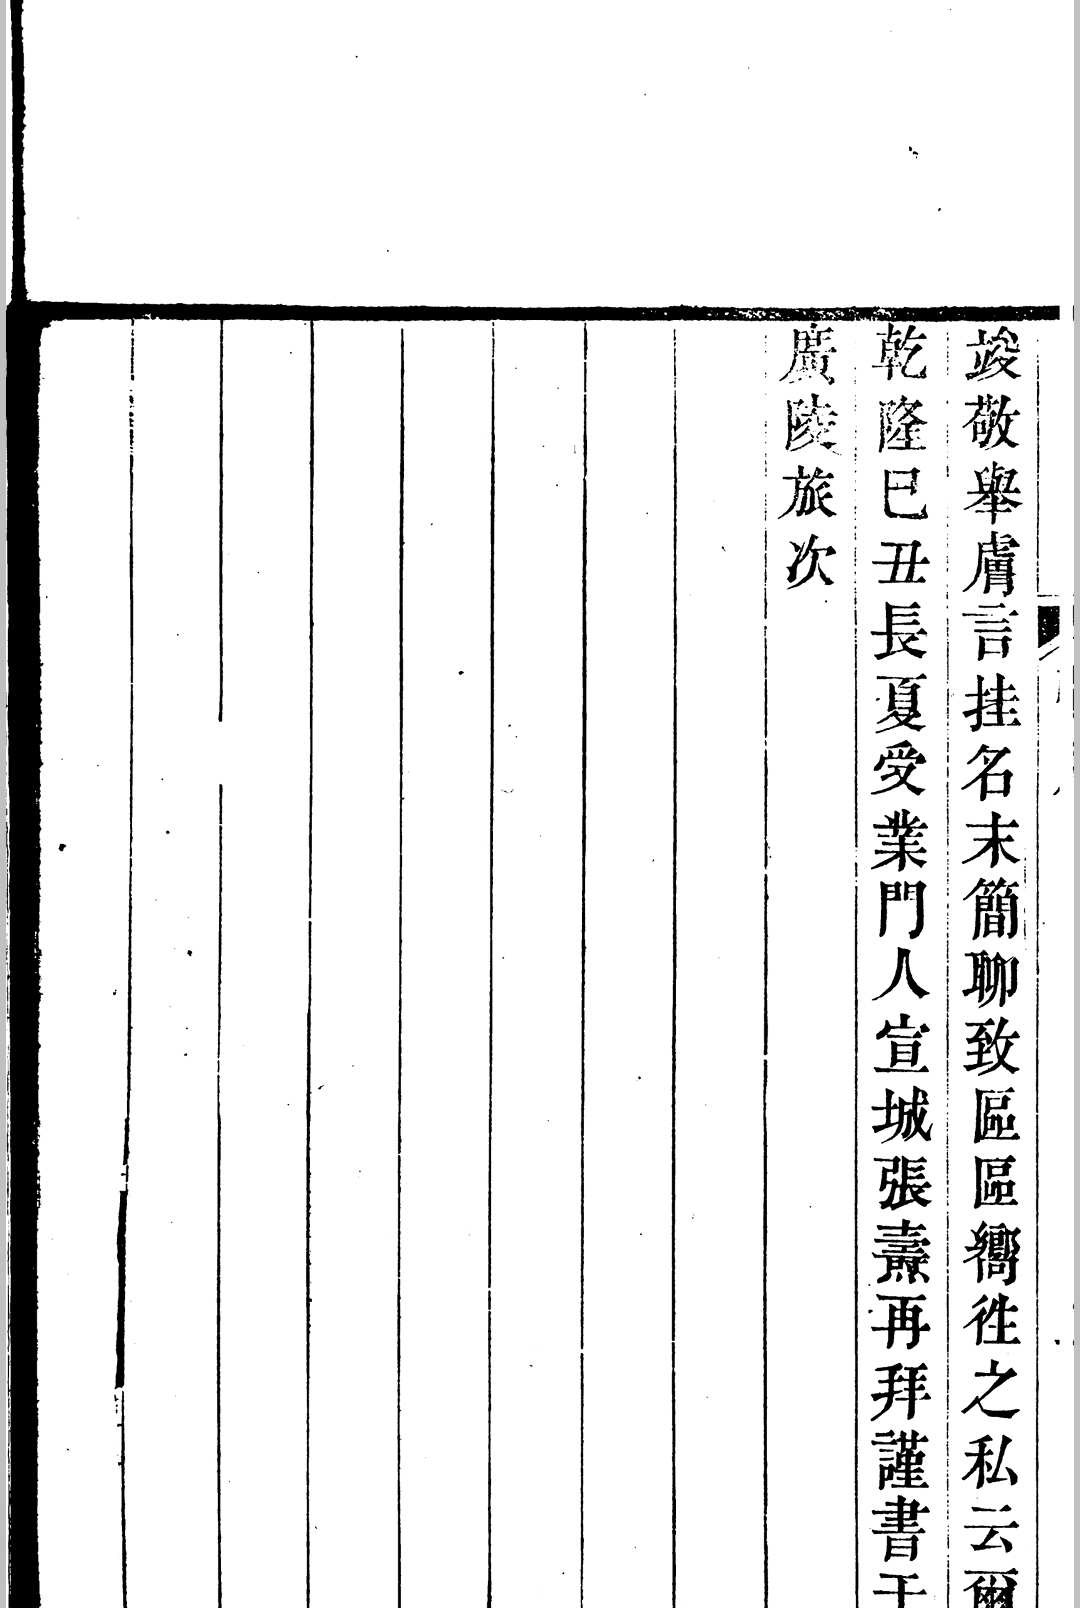 竣敬舉膚言挂名末簡聊致區區嚮徃之私云爾
乾隆巳丑長夏受業門人宣城張燾再拜謹書于
廣陵旅次